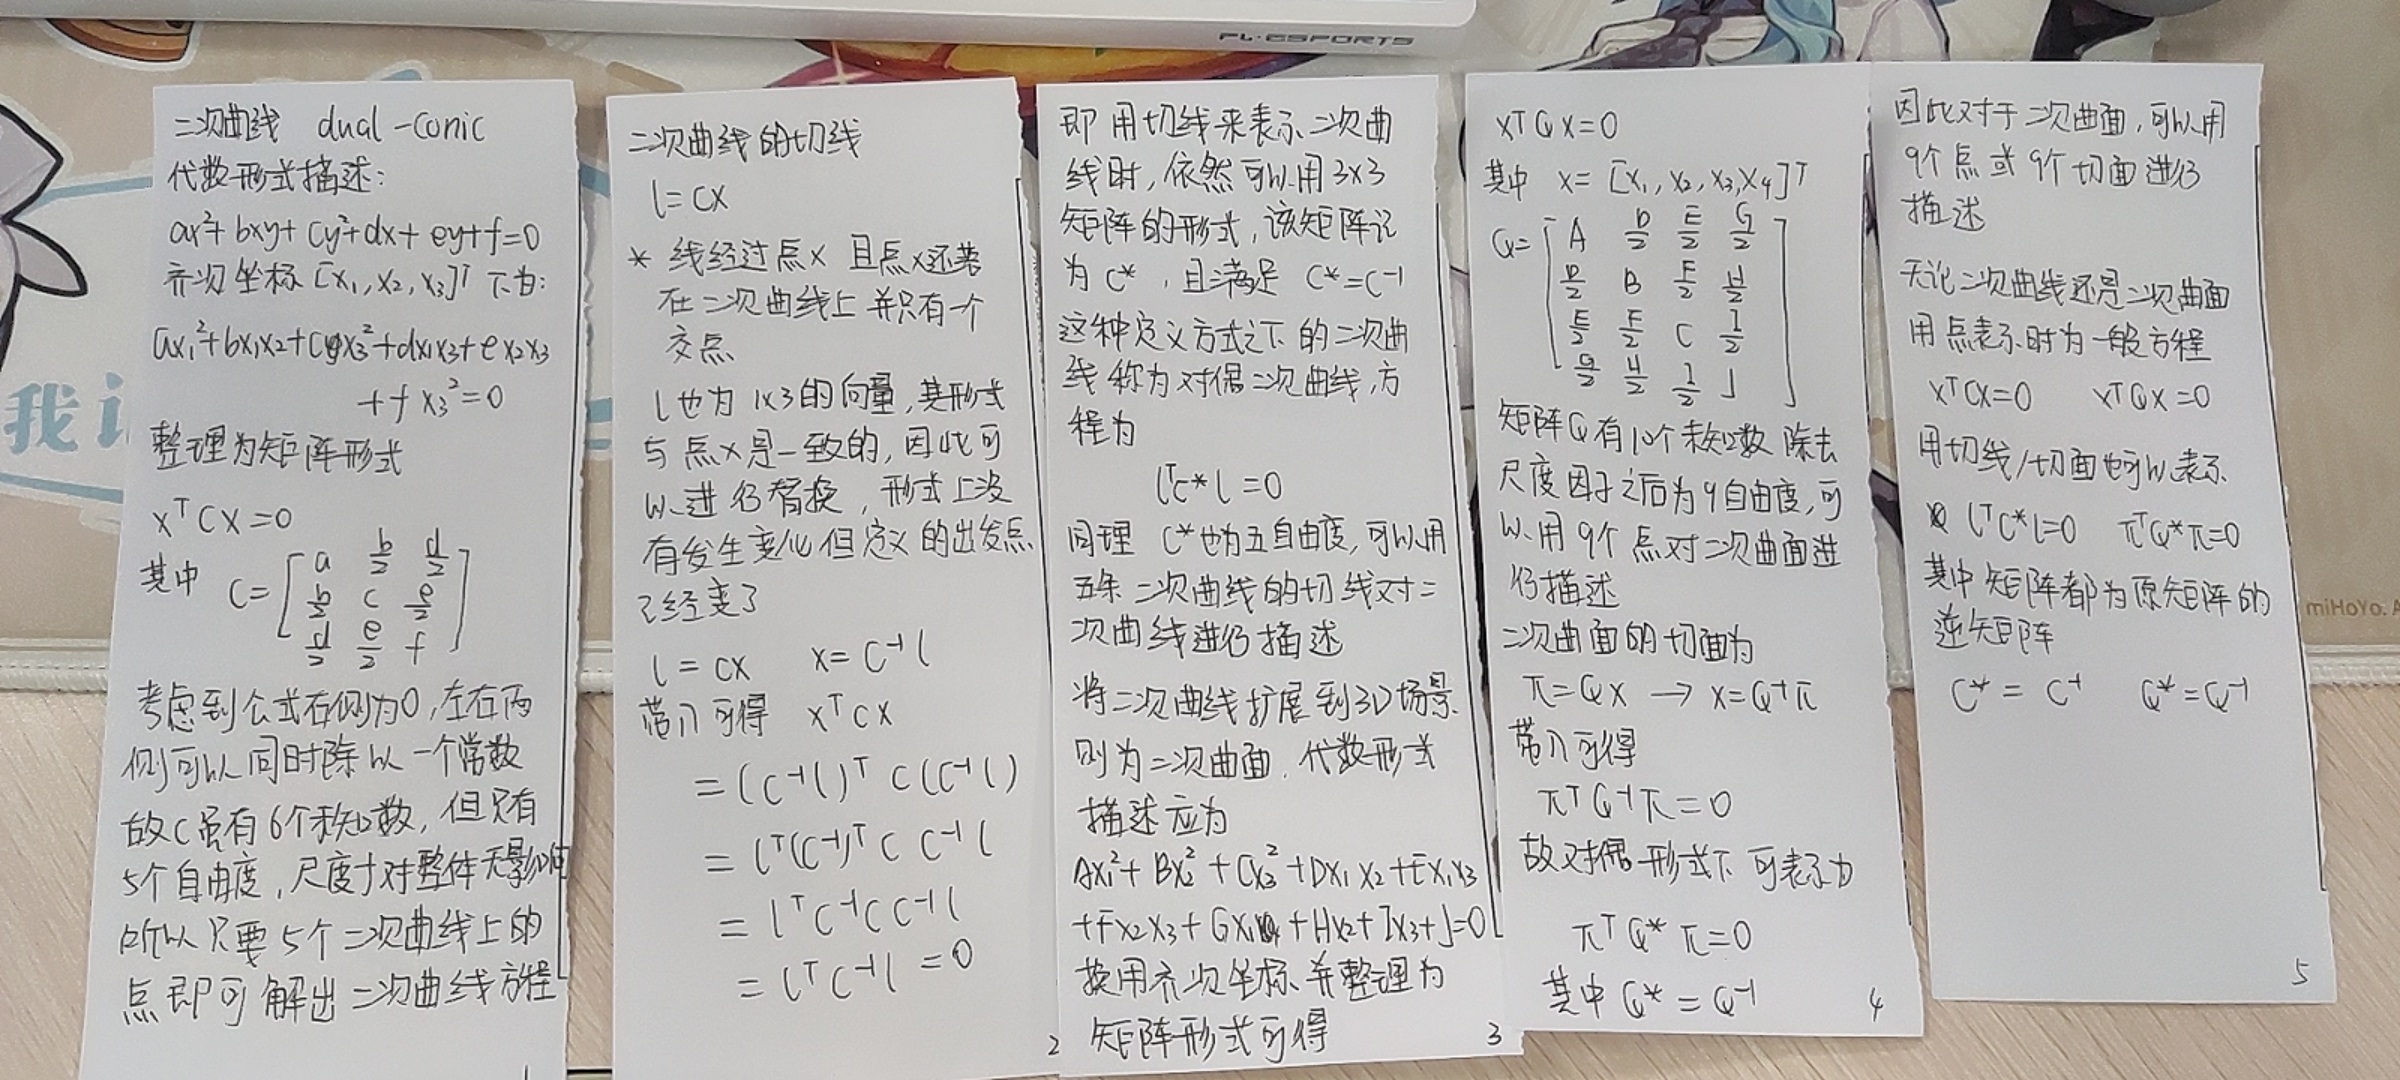 FL·ESPORTS
我
miHoYo. A
二次曲线 dual-conic
代数形式描述:
ax²+bxy+cy²+dx+ey+f=0
齐次坐标[x₁,x₂,x₃]ᵀ下为:
ax₁²+bx₁x₂+cx₃²+dx₁x₃+ex₂x₃
+f x₃²=0
整理为矩阵形式
xᵀCx=0
其中 C=[a b/2 d/2
b/2 c e/2
d/2 e/2 f]
考虑到公式右侧为0,左右两
侧可以同时除以一个常数
故C虽有6个未知数,但只有
5个自由度,尺度寸对整体无影响
所以只要5个二次曲线上的
点即可解出二次曲线方程
1
二次曲线的切线
l=Cx
* 线经过点x 且点x还落
在二次曲线上并只有一个
交点
l也为1x3的向量,其形式
与点x是一致的,因此可
以进行替换,形式上没
有发生变化但定义的出发点
已经变了
l=Cx x=C⁻¹l
带入可得 xᵀCx
=(C⁻¹l)ᵀC(C⁻¹l)
=lᵀ(C⁻¹)ᵀC C⁻¹l
=lᵀC⁻¹CC⁻¹l
=lᵀC⁻¹l=0
2
即用切线来表示二次曲
线时,依然可以用3x3
矩阵的形式,该矩阵记
为C*,且满足 C*=C⁻¹
这种定义方式之下的二次曲
线称为对偶二次曲线,方
程为
lᵀC*l=0
同理 C*也为五自由度,可以用
五条二次曲线的切线对二
次曲线进行描述
将二次曲线扩展到3D场景
则为二次曲面,代数形式
描述应为
Ax₁²+Bx₂²+Cx₃²+Dx₁x₂+Ex₁x₃
+Fx₂x₃+Gx₁+Hx₂+Ix₃+J=0
换用齐次坐标并整理为
矩阵形式可得
3
xᵀQx=0
其中 x=[x₁,x₂,x₃,x₄]ᵀ
Q=[A D/2 E/2 G/2
D/2 B F/2 H/2
E/2 F/2 C I/2
G/2 H/2 I/2 J]
矩阵Q有10个未知数除去
尺度因子之后为9自由度,可
以用9个点对二次曲面进
行描述
二次曲面的切面为
π=Qx → x=Q⁻¹π
带入可得
πᵀQ⁻¹π=0
故对偶形式下可表示为
πᵀQ*π=0
其中Q*=Q⁻¹
4
因此对于二次曲面,可以用
9个点或9个切面进行
描述
无论二次曲线还是二次曲面
用点表示时为一般方程
xᵀCx=0 xᵀQx=0
用切线/切面也可以表示
lᵀC*l=0 πᵀQ*π=0
其中矩阵都为原矩阵的
逆矩阵
C*=C⁻¹ Q*=Q⁻¹
5